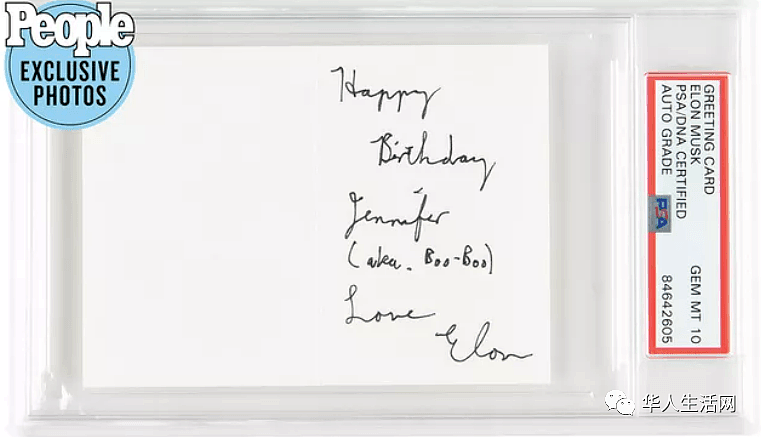 People
EXCLUSIVE
PHOTOS
Happy
Birthday
Jennifer
(aka. Boo-Boo)
Love
Elon
GREETING CARD
ELON MUSK
PSA/DNA CERTIFIED
AUTO GRADE
GEM MT 10
84642605
PSA
华人生活网